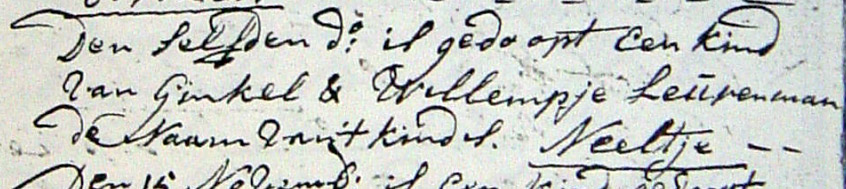 Den selfden d:o is gedoopt een kind
van Ginkel & Willempje Leuvenman
de Naam van 't kind is. Neeltje --
Den 15 Novemb: is een kind gedoopt